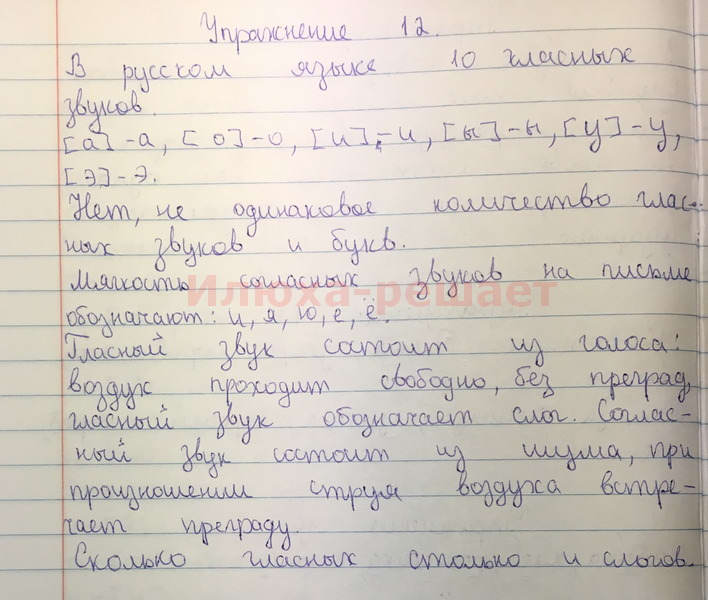 Упражнение 12.
В русском языке 10 гласных
звуков.
[а]-а, [о]-о, [и]-и, [ы]-ы, [у]-у,
[э]-э.
Нет, не одинаковое количество глас-
ных звуков и букв.
Мягкость согласных звуков на письме
Илюха-решает
обозначают: и, я, ю, е, ё.
Гласный звук состоит из голоса:
воздух проходит свободно, без преград,
гласный звук обозначает слог. Соглас-
ный звук состоит из шума, при
произношении струя воздуха встре-
чает преграду.
Сколько гласных столько и слогов.